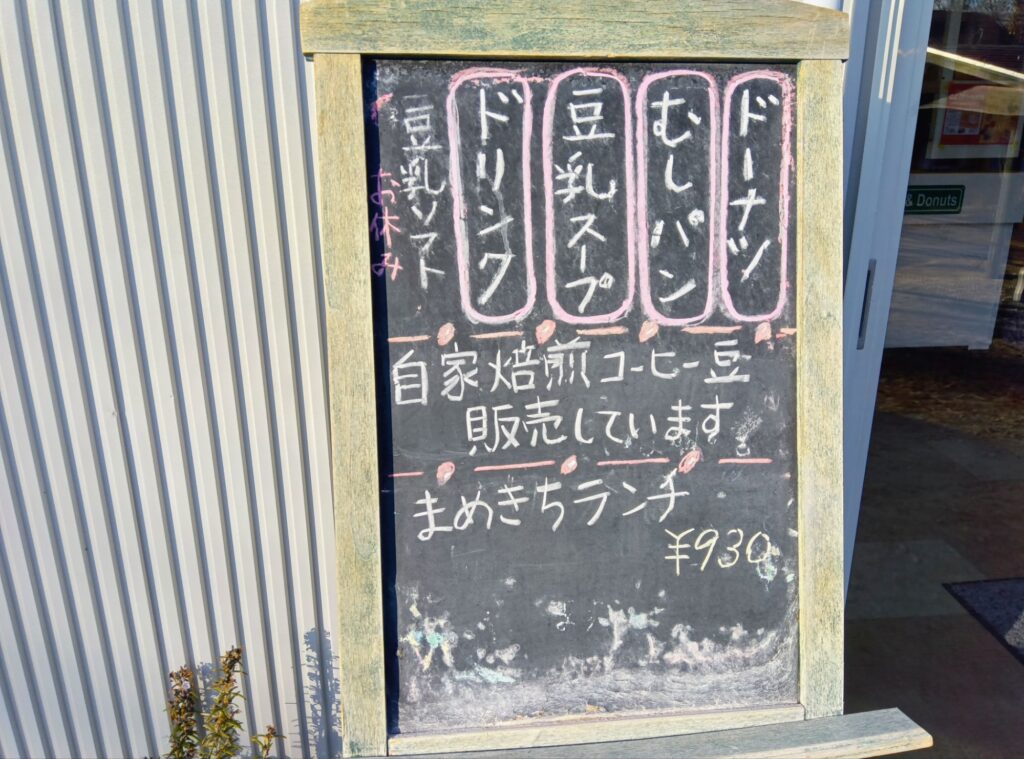 ドーナツ
むしパン
豆乳スープ
ドリンク
豆乳ソフト
お休み
自家焙煎コーヒー豆
販売しています
まめきちランチ
¥930
& Donuts